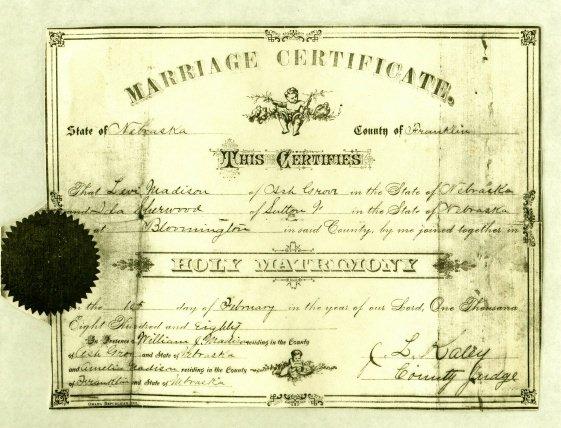 MARRIAGE CERTIFICATE.
State of Nebraska County of Franklin
THIS CERTIFIES
That Levi Madison of Ash Grove in the State of Nebraska
and Sherwood of Sutton in the State of Nebraska
at Bloomington in said County, by me joined together in
HOLY MATRIMONY
the day of February in the year of our Lord, One Thousand
Eight Hundred and Eighty
In Presence William J. Madison residing in the County
of Ash Grove and State of Nebraska
and Amelia Madison residing in the County
of Franklin and State of Nebraska
L. Kaley
County Judge
OMAHA REPUBLICAN